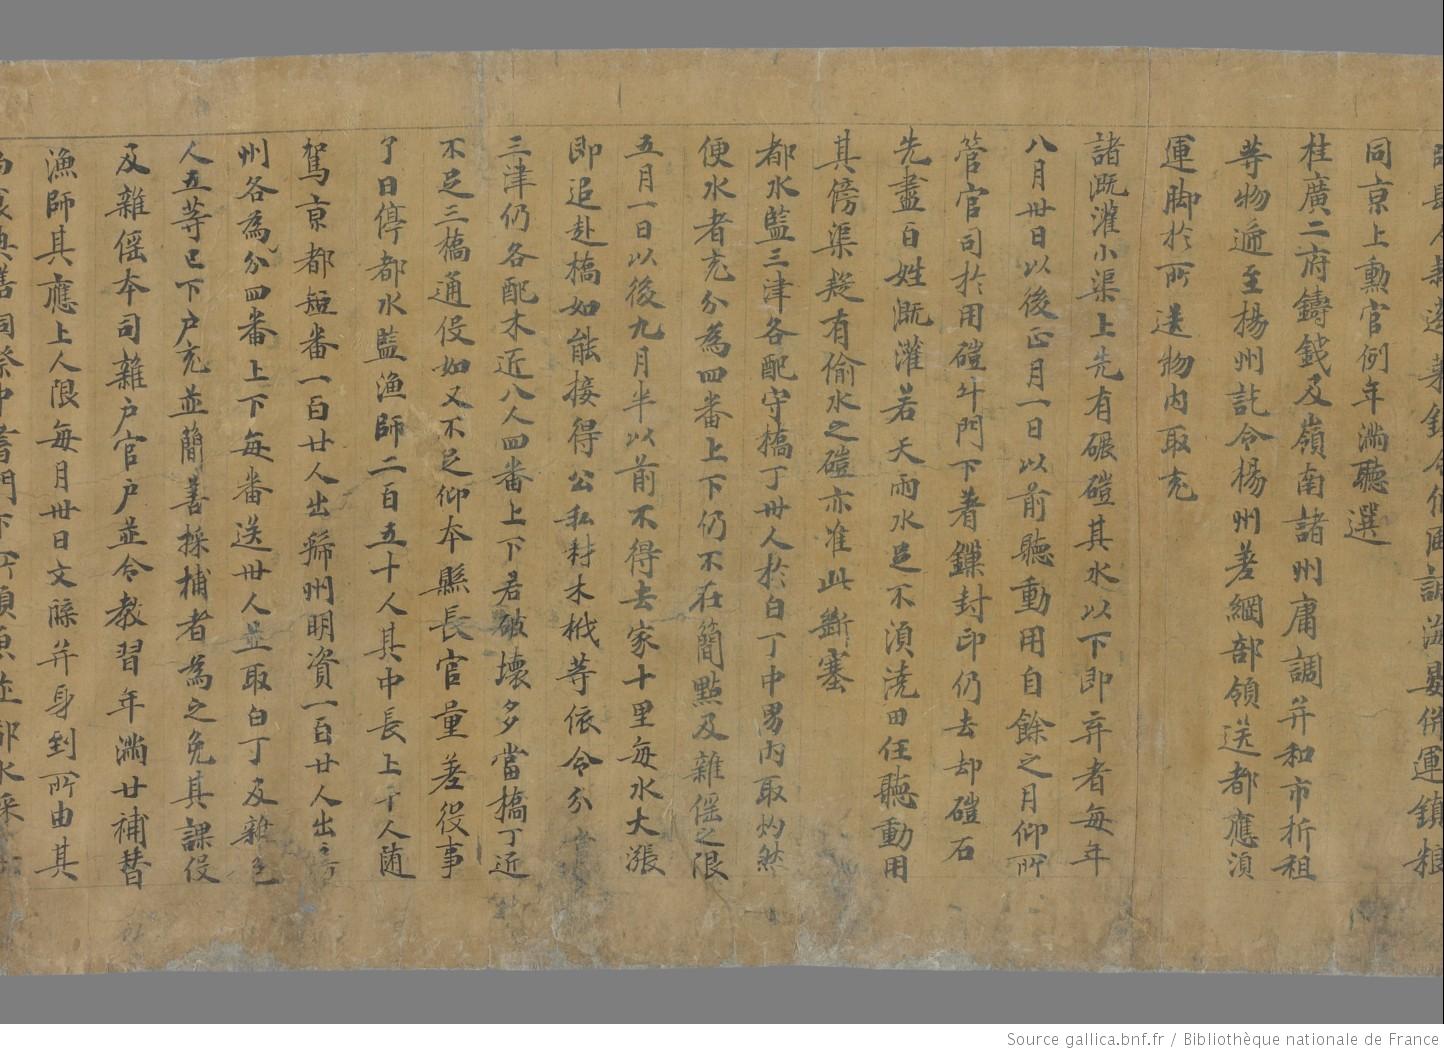 師縣人 海晏併運鎮粮
同京上勲官例年滿聽選
桂廣二府鑄錢及嶺南諸州庸調并和市折租
等物遞至揚州訖令揚州差綱部領送都應湏
運脚於所送物内取充
諸溉灌小渠上先有碾磑其水以下即弃者每年
八月卅日以後正月一日以前聽動用自餘之月仰所
管官司於用磑斗門下著鏁封印仍去却磑石
先盡百姓溉灌若天雨水足不湏澆田任聽動用
其傍渠疑有偷水之磑亦准此斷塞
都水監三津各配守橋丁卅人於白丁中男内取灼然
便水者充分為四番上下仍不在簡點及雜徭之限
五月一日以後九月半以前不得去家十里每水大漲
即追赴橋如能接得公私材木栰等依令分
三津仍各配木近八人四番上下若破壞多當橋丁近
不足三橋通役如又不足仰本縣長官量差役事
了日停都水監漁師二百五十人其中長上十人随
駕京都短番一百廿人出虢州明資一百廿人出
州各為分四番上下每番送卅人並取白丁及雜色
人五等已下户充並簡善採捕者為之免其課役
及雜徭本司雜户官户並令教習年滿廿補替
漁師其應上人限每月卅日文牒并身到所由其
典膳祠祭中書門下所湏魚並都水采
Source gallica.bnf.fr / Bibliothèque nationale de France